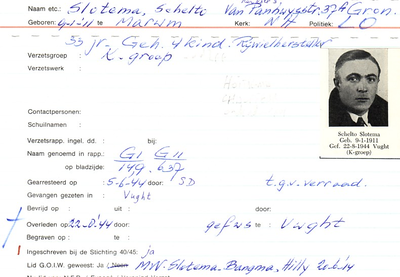 Naam etc.: Slotema, Schelto Van Pannwysstr. 37A Gron.
Geboren: 9-1-11 te Marum Kerk: NH Politiek: LO
33 jr. Geh. 4 Kind. Rijwielhersteller
Verzetsgroep: K-groep
Verzetswerk
Contactpersonen:
Schuilnaam:
Verzetsrapp. ingel. d.d. : bij:
Naam genoemd in rapp.: GI GII
op bladzijde: 149. 637
Gearresteerd op : 5-6-44 door: SD t.g.v. verraad.
Gevangen gezeten in : Vught
Bevrijd op : uit : door:
Overleden op: 22-8-'44 door: gefus. te : Vught
Begraven op : te :
Ingeschreven bij de Stichting 40/45: ja
Lid G.O.I.W. geweest: Ja / Mw. Slotema-Bangma, Hilly 20-6-14
Schelto Slotema
Geb. 9-1-1911
Gef. 22-8-1944 Vught
(K-groep)